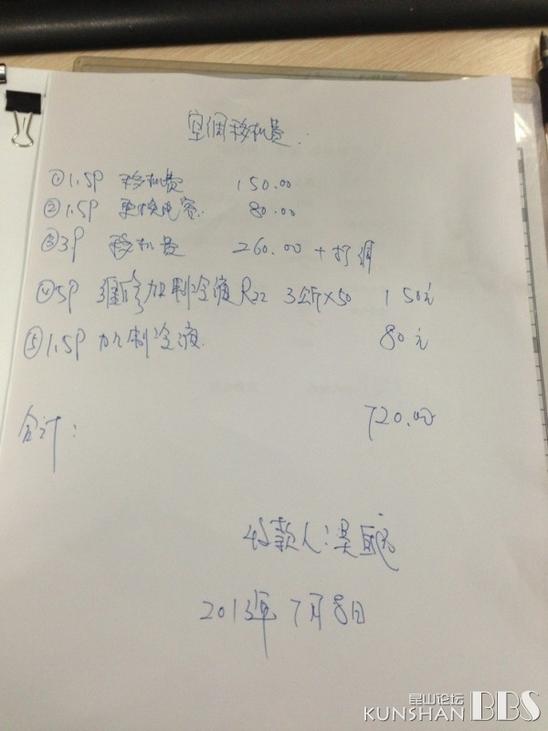 空调移机费.
①1.5P 移机费 150.00
②1.5P 更换电容. 80.00
③3P 移机费 260.00 + 打洞
④5P 加制冷液R22 3公斤×50 150元
⑤1.5P 加制冷液. 80元
合计: 720.00
收款人:吴
2013年7月8日
昆山论坛
KUNSHAN BBS